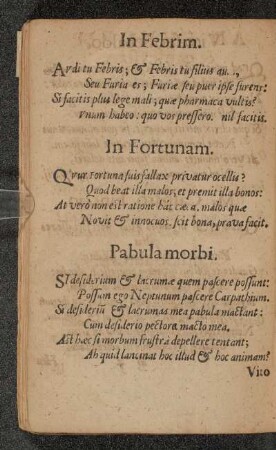 In Febrim.
Ardi tu Febris; & Febris tu filius
Seu Furia es; Furiæ seu puer ipse furens:
Si facitis plus lege mali; quæ pharmaca vultis?
Vnum habeo: quo vos pressero. nil facitis.
In Fortunam.
Cur Fortuna suis fallax privatur ocellis?
Quod beat illa malos, et premit illa bonos:
At verò non est ratione hâc cæca. malos quæ
Novit & innocuos. scit bona, prava facit.
Pabula morbi.
SI desiderium & lacrumæ quem pascere possunt:
Possum ego Neptunum pascere Carpathium.
Si desideriū & lacrumas mea pabula mactant:
Cum desiderio pectora macto mea.
Ast hæc si morbum frustrà depellere tentant;
Ah quid lancinat hoc illud & hoc animam?
Vito